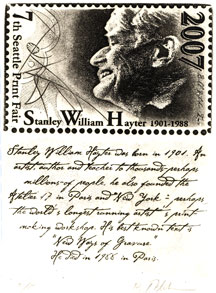 7th Seattle Print Fair
2007
Stanley William Hayter 1901-1988
Stanley William Hayter was born in 1901. An
artist, author and teacher to thousands, perhaps
millions of people, he also founded the
Atelier 17 in Paris and New York - perhaps
the world's longest running artist's print
making workshop. His best known text is
"New Ways of Gravure".
He died in 1988 in Paris.